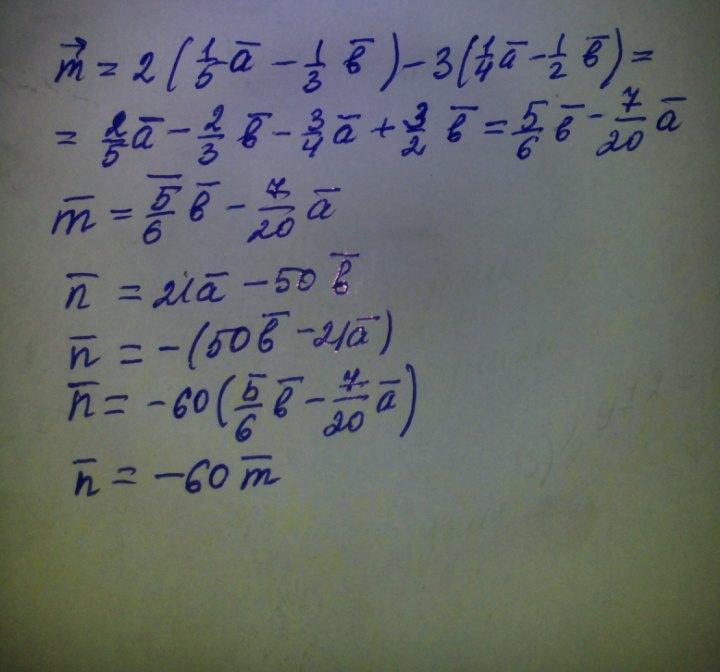 m⃗ = 2(1/5 a̅ − 1/3 в̅) − 3(1/4 a̅ − 1/2 в̅) =
= 2/5 a̅ − 2/3 в̅ − 3/4 a̅ + 3/2 в̅ = 5/6 в̅ − 7/20 a̅
m̅ = 5/6 в̅ − 7/20 a̅
n̅ = 21a̅ − 50в̅
n̅ = −(50в̅ − 21a̅)
n̅ = −60(5/6 в̅ − 7/20 a̅)
n̅ = −60m̅